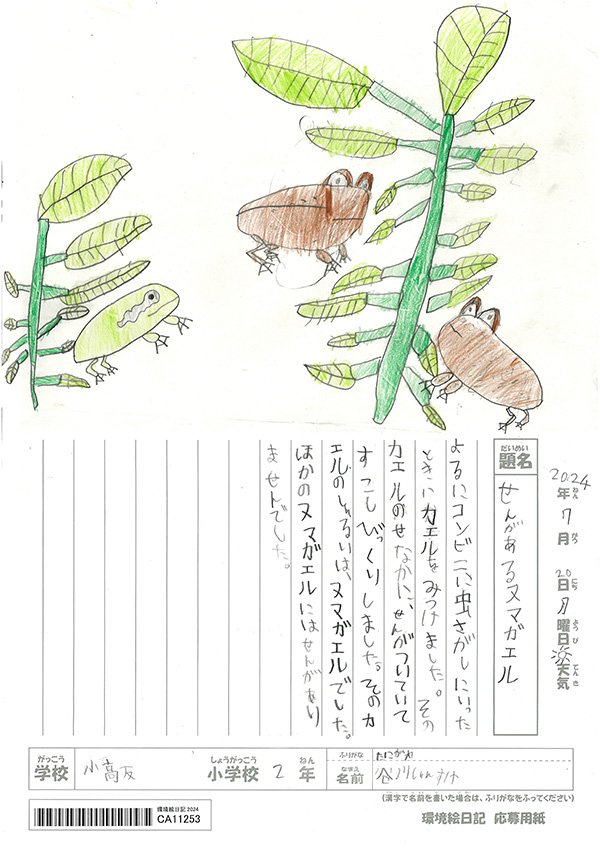 2024年ねん7月がつ20日にち月曜日ようび天気てんき
題名だいめい
せんがあるヌマガエル
よるにコンビニに虫さがしにいった
ときにカエルをみつけました。その
カエルのせなかに、せんがついていて
すこしびっくりしました。そのカ
エルのしゅるいは、ヌマガエルでした。
ほかのヌマガエルにはせんがあり
ませんでした。
がっこう しょうがっこう ねん
学校 小高坂 小学校 2年
ふりがな たにがわ
なまえ
名前 谷川しゅんすけ
(漢字で名前を書いた場合は、ふりがなをふってください)
環境絵日記2024
CA11253
環境絵日記 応募用紙